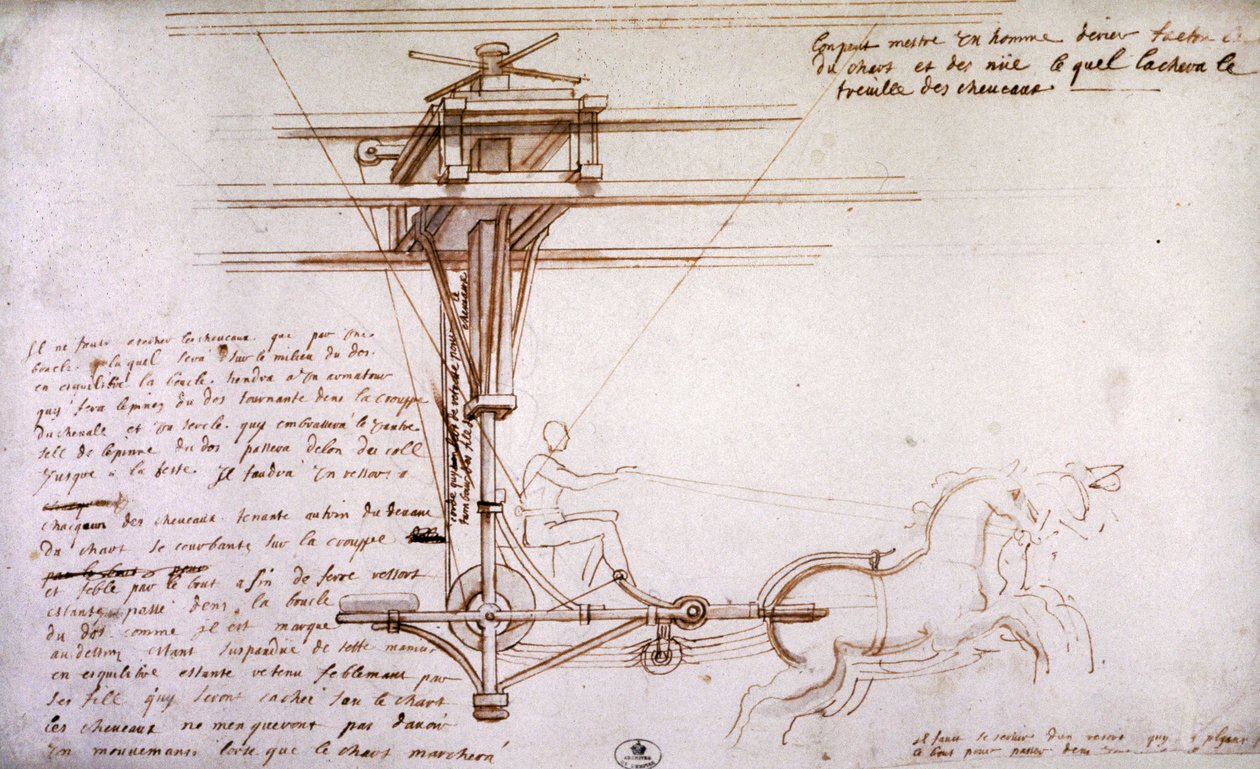 Lon peut mestre un homme derier
du chart et des nüe le quel lachera le
treuille des cheveaux
Il ne faut atacher les cheveaux que par une
boucle laquel sera sur le milieu du dos
en esquilibre la boucle tiendra a un armateur
quy sera lepines du dos tournante dens la crouppe
du chevale et un sercle quy embrassera le vantre
sell de lepinne du dos passera delon du coll
jusque a la teste Il faudra un ressort a
chacquun des cheveaux tenante au timon du devant
du chart se courbante sur la crouppe
et feble par le bout a fin de ferre ressort
estante passé dens la boucle
du dos comme il est marque
au dessin estant suspandue de sette manier
en esquilibre estante retenu feblemant par
ses fill quy seront caché sou le chart
les cheveaux ne menqueront pas davoir
un mouvemant lorse que le chart marchera
corde quy
tambour
le
cheveaux
il faut se servier dun resort quy
le bout pour passer dens
ARCHIVES
DE L'EMPIRE